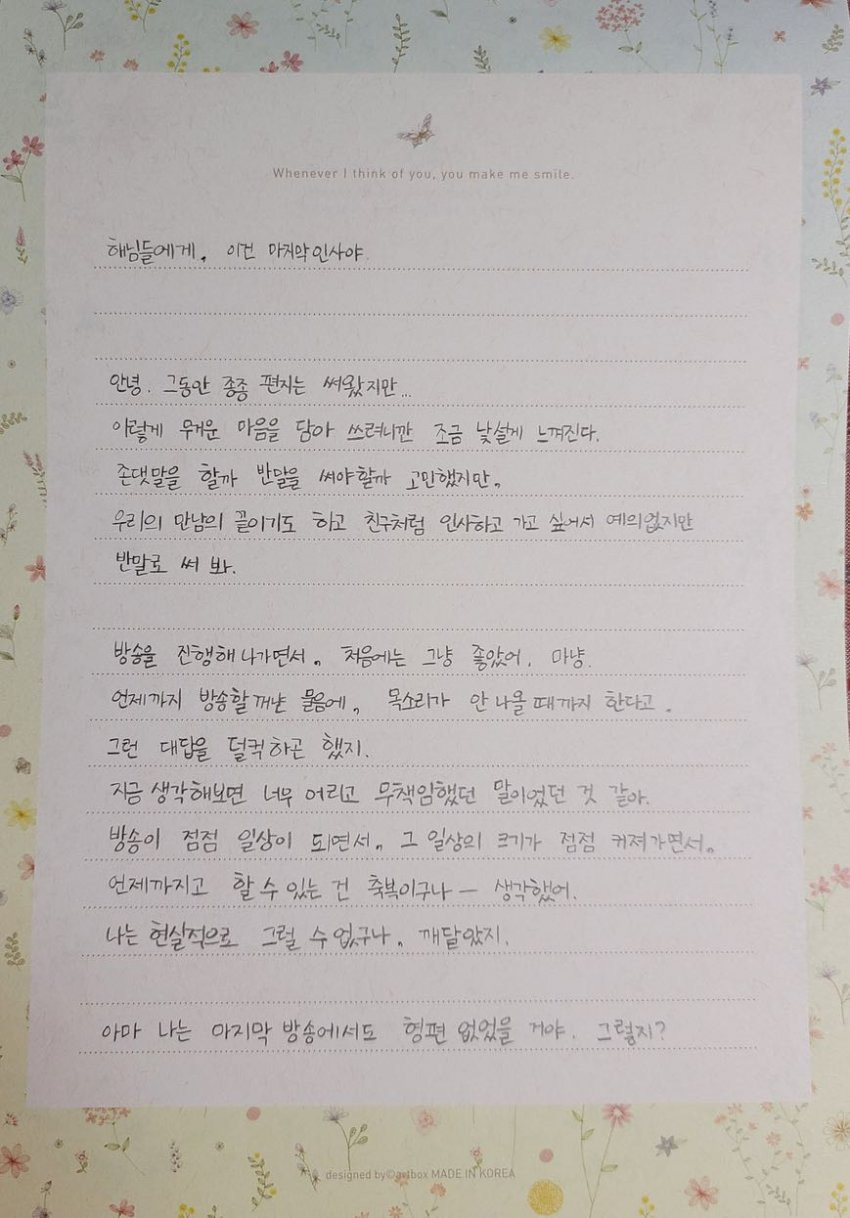 Whenever I think of you, you make me smile.
해님들에게. 이건 마지막 인사야.
안녕. 그동안 종종 편지는 써왔지만...
이렇게 무거운 마음을 담아 쓰려니깐 조금 낯설게 느껴진다.
존댓말을 할까 반말을 써야할까 고민했지만,
우리의 만남의 끝이기도 하고 친구처럼 인사하고 가고 싶어서 예의없지만
반말로 써 봐.
방송을 진행해 나가면서, 처음에는 그냥 좋았어. 마냥.
언제까지 방송할꺼냔 물음에, 목소리가 안 나올 때까지 한다고.
그런 대답을 덜컥 하곤 했지.
지금 생각해보면 너무 어리고 무책임했던 말이었던 것 같아.
방송이 점점 일상이 되면서, 그 일상의 크기가 점점 커져가면서,
언제까지고 할 수 있는 건 축복이구나 — 생각했어.
나는 현실적으로 그럴 수 없구나, 깨달았지.
아마 나는 마지막 방송에서도 형편 없었을 거야. 그렇지?
designed by©artbox MADE IN KOREA